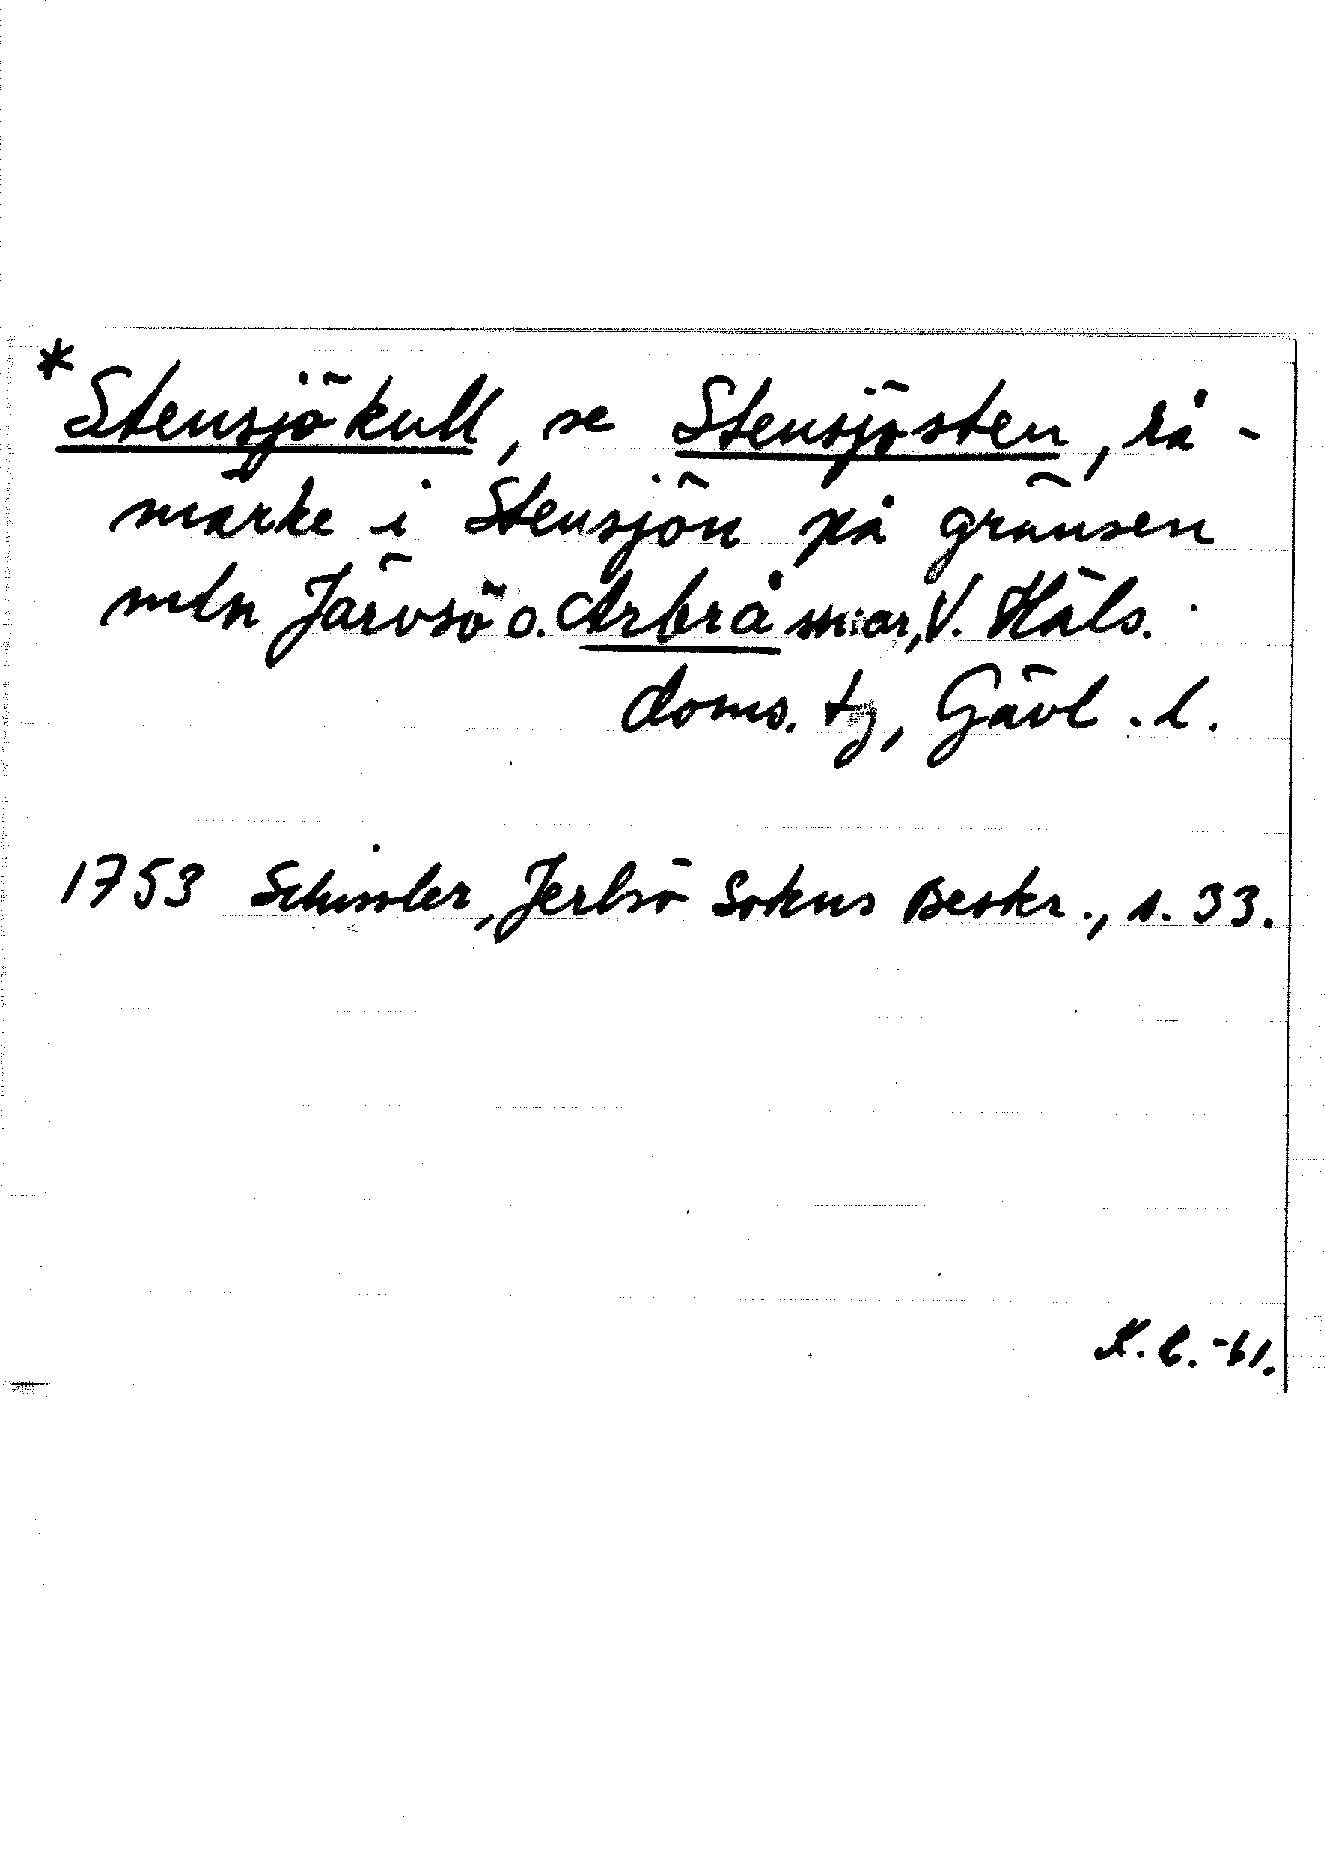 * Stensjökull, se Stensjösten, rå-
märke i Stensjön på gränsen
mln Järvsö o. Arbrå snar, V. Häls.
doms. tg, Gävl. l.
1753 Schissler, Jerlsö Sokns Beskr., s. 33.
K. C. -61.